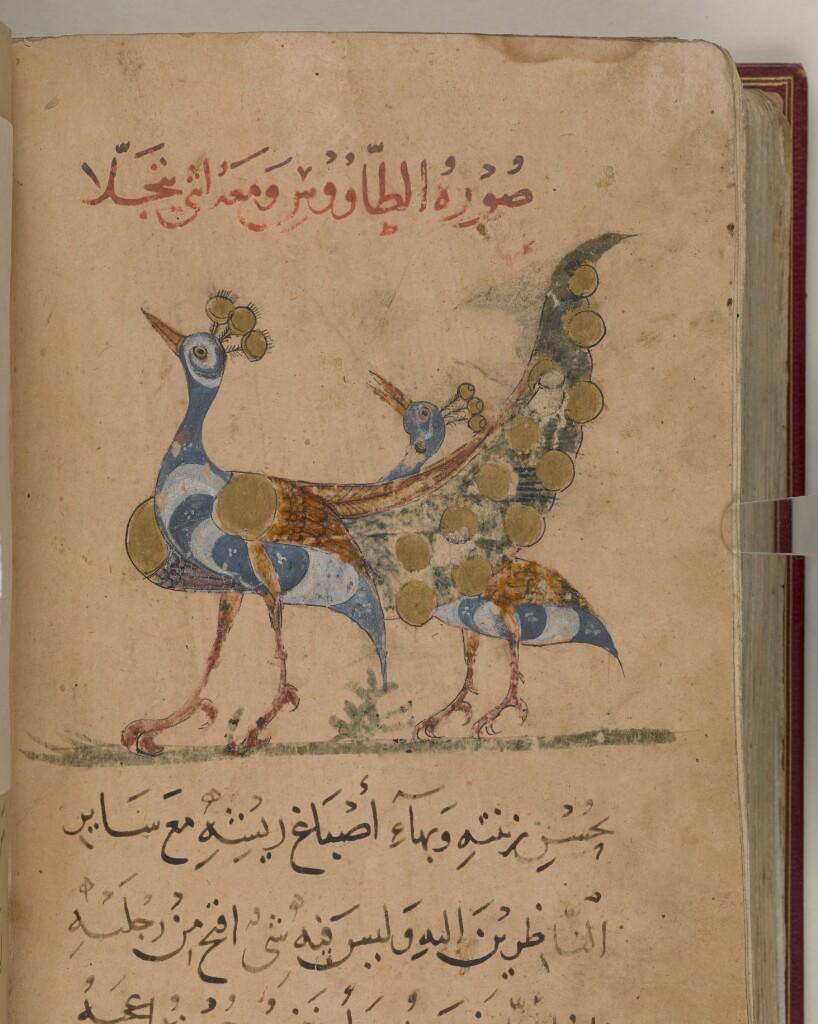 صُوْرة الطَّاوُوْس وَمَعَهُ انثى يتجَلّا
بحُسْنِ زينتهِ وَبهآءِ أصْبَاغ ريشهِ مَعَ سَاير
النَّاظرِيْنَ اليهِ وَليسَ فيهِ شئ اقبح مِنْ رجليْهِ